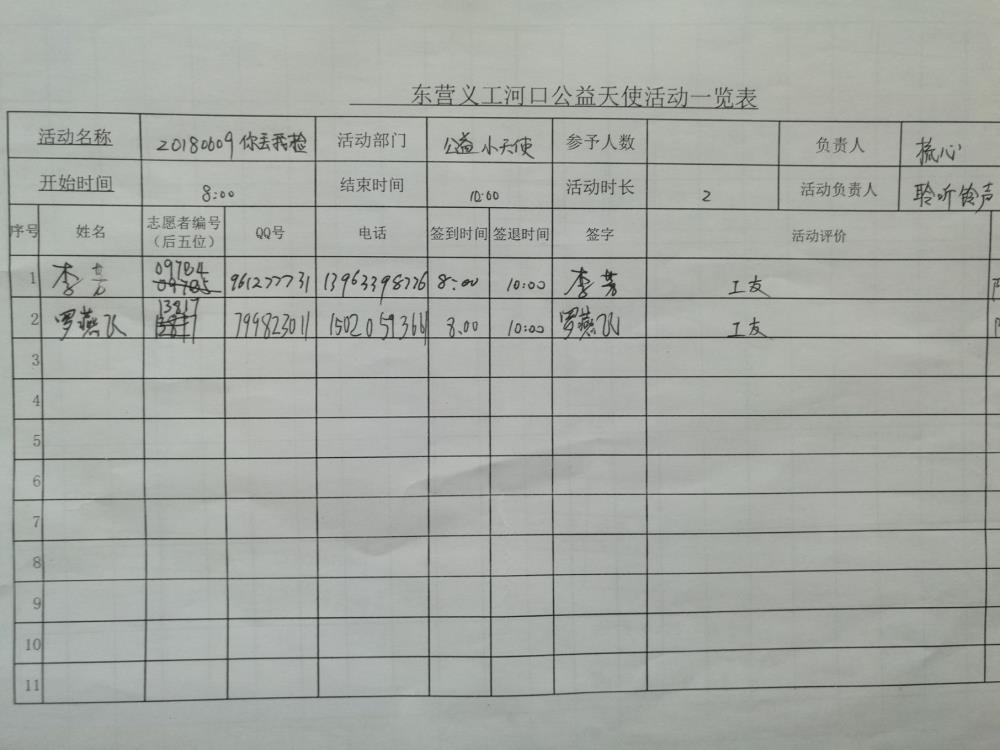 东营义工河口公益天使活动一览表
活动名称 20180609你丢我捡 活动部门 公益小天使 参予人数 负责人 梳心
开始时间 8:00 结束时间 10:00 活动时长 2 活动负责人 聆听铃声
序号 姓名 志愿者编号（后五位） QQ号 电话 签到时间 签退时间 签字 活动评价
1 李芳 09784 961277731 13963398776 8:00 10:00 李芳 工友
2 罗燕飞 13817 799823011 15020593666 8:00 10:00 罗燕飞 工友
3
4
5
6
7
8
9
10
11